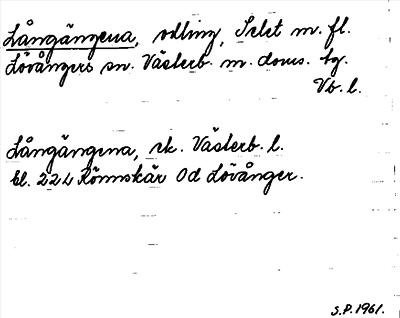 Långängena, odling, Selet m. fl.
Lövångers sn. Västerb. m. doms. tg.
Vb. l.
Långängena, ek. Västerb. l.
bl. 224 Rönnskär Od Lövånger.
S.P. 1961.